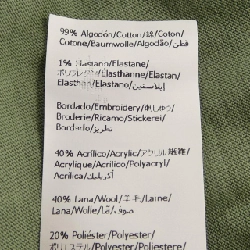 99% Algodón/Cotton/綿/Coton/
Cotone/Baumwolle/Algodão/قطن
1% Elastano/Elastane/
ポリウレタン/Élasthanne/Elastan/
Elasthan/Elastano/إيلاستين
Bordado/Embroidery/刺しゅう/
Broderie/Ricamo/Stickerei/
Bordado/تطريز
40% Acrílico/Acrylic/アクリル繊維/
Acrylique/Acrilico/Polyacryl/
Acrílica/أكريليك
40% Lana/Wool/毛/Laine/
Lana/Wolle/Lã/صوف
20% Poliéster/Polyester/
ポリエステル/Polyester/Poliestere/